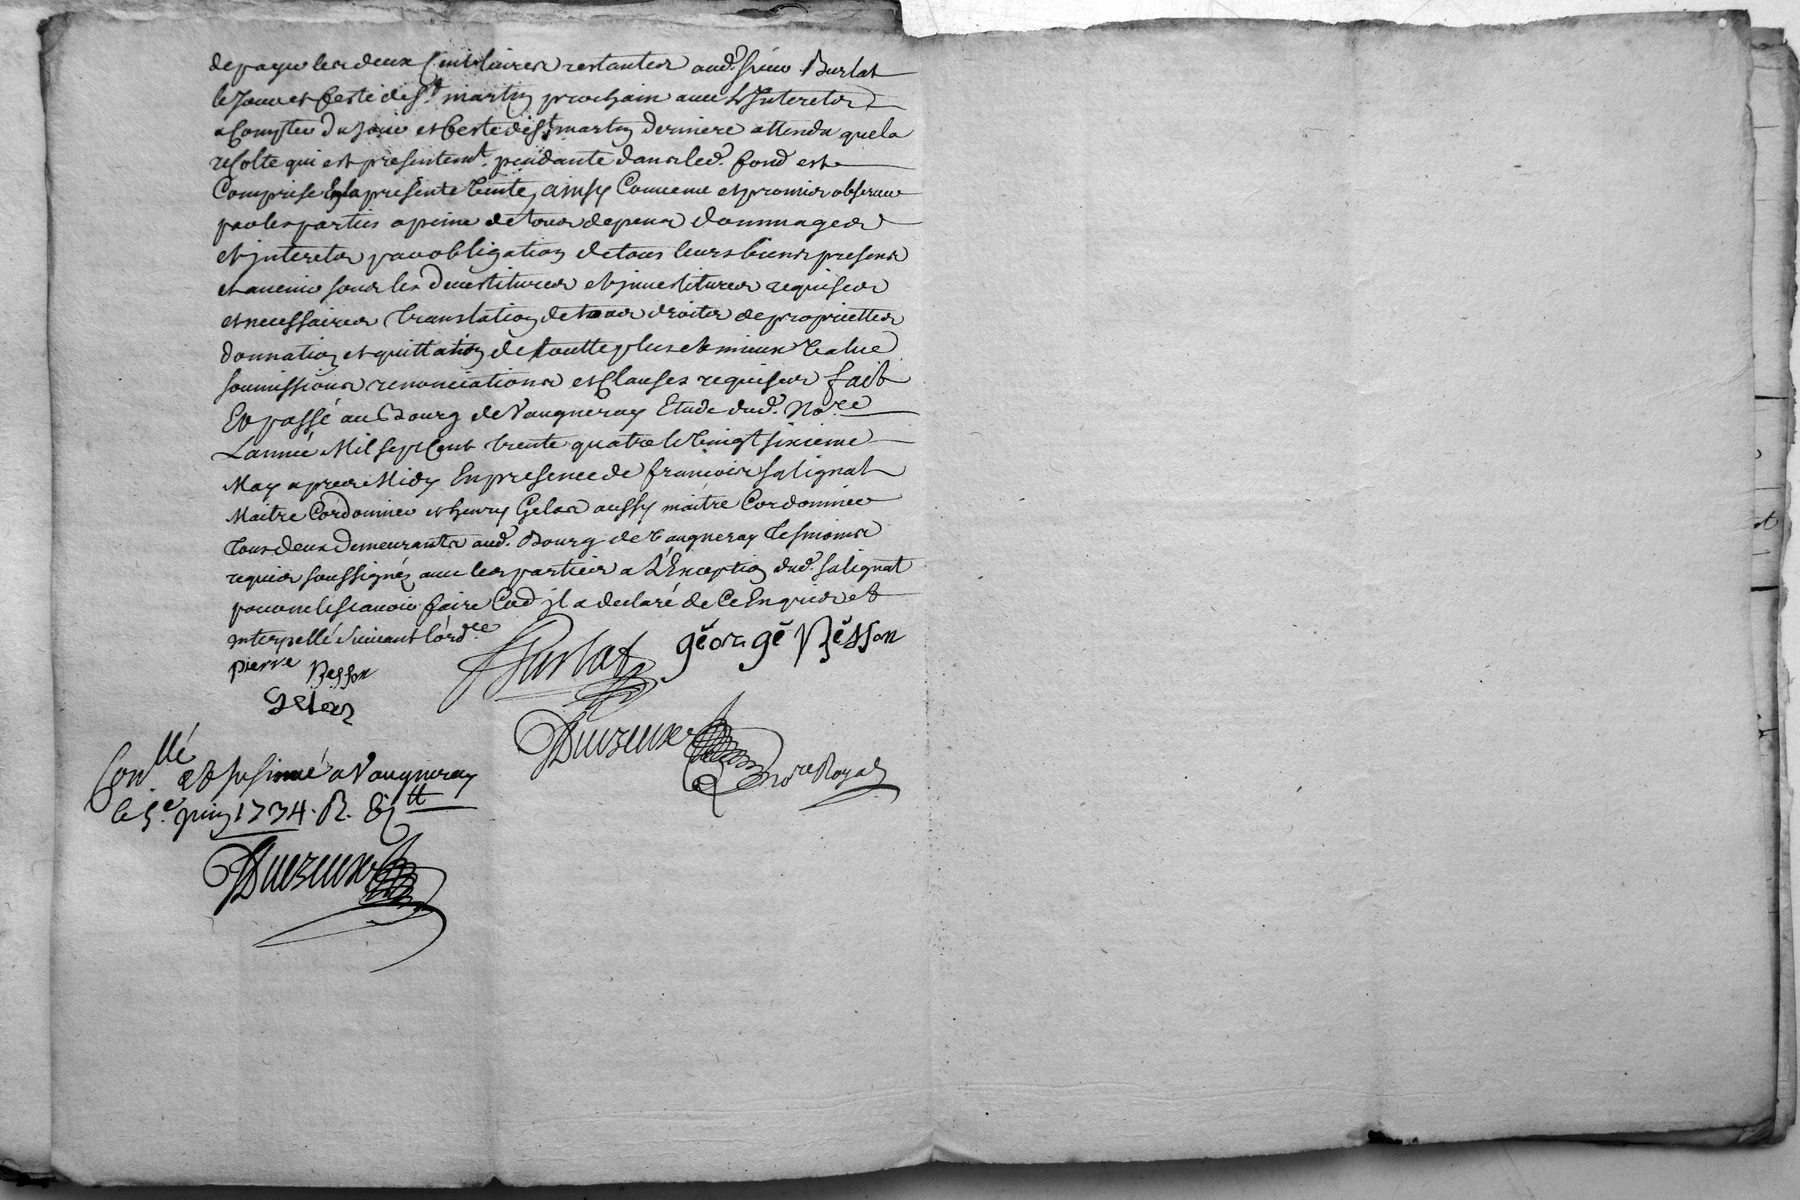 de payer les deux Cent livres restantes aud. sieur Burlat
le Jour et feste de St. martin prochain avec L'Interets
a Compter du Jour et feste de St. martin derniere attendu que la
recolte qui est presentemt. pendante dans led. fond est
Comprise En la presente Vente, ainsy Convenu et promis observer
par les parties a peine de tous depens dommages
et interets par obligation de tous leurs biens presens
et avenir sous les devestitures et investitures requises
et necessaires translation de tous droits de proprietter
donnation et quittation de toutte plus et mieux Value
soumissions renonciations et Clauses requises fait
Et passé au Bourg de Vaugneray Etude dud. No.re
L'année Mil sept Cent trente quatre le Vingt sixieme
May apres Midy En presence de francois salignat
Maitre Cordonnier et henry Gelas aussy maitre Cordonnier
tous deux demeurants aud. Bourg de Vaugneray tesmoins
requis soussignés avec les parties a L'Exception dud. salignat
pour ne le scavoir faire Comme il a declaré de Ce Enquis et
Interpellé suivant l'ord.ce
Burlat george Besson
pierre Besson
Gelas
Duvzeuxe no.re Royal
Con.llé et Insinué a Vaugneray
le 5.e juin 1734. R. tt
Duvzeuxe